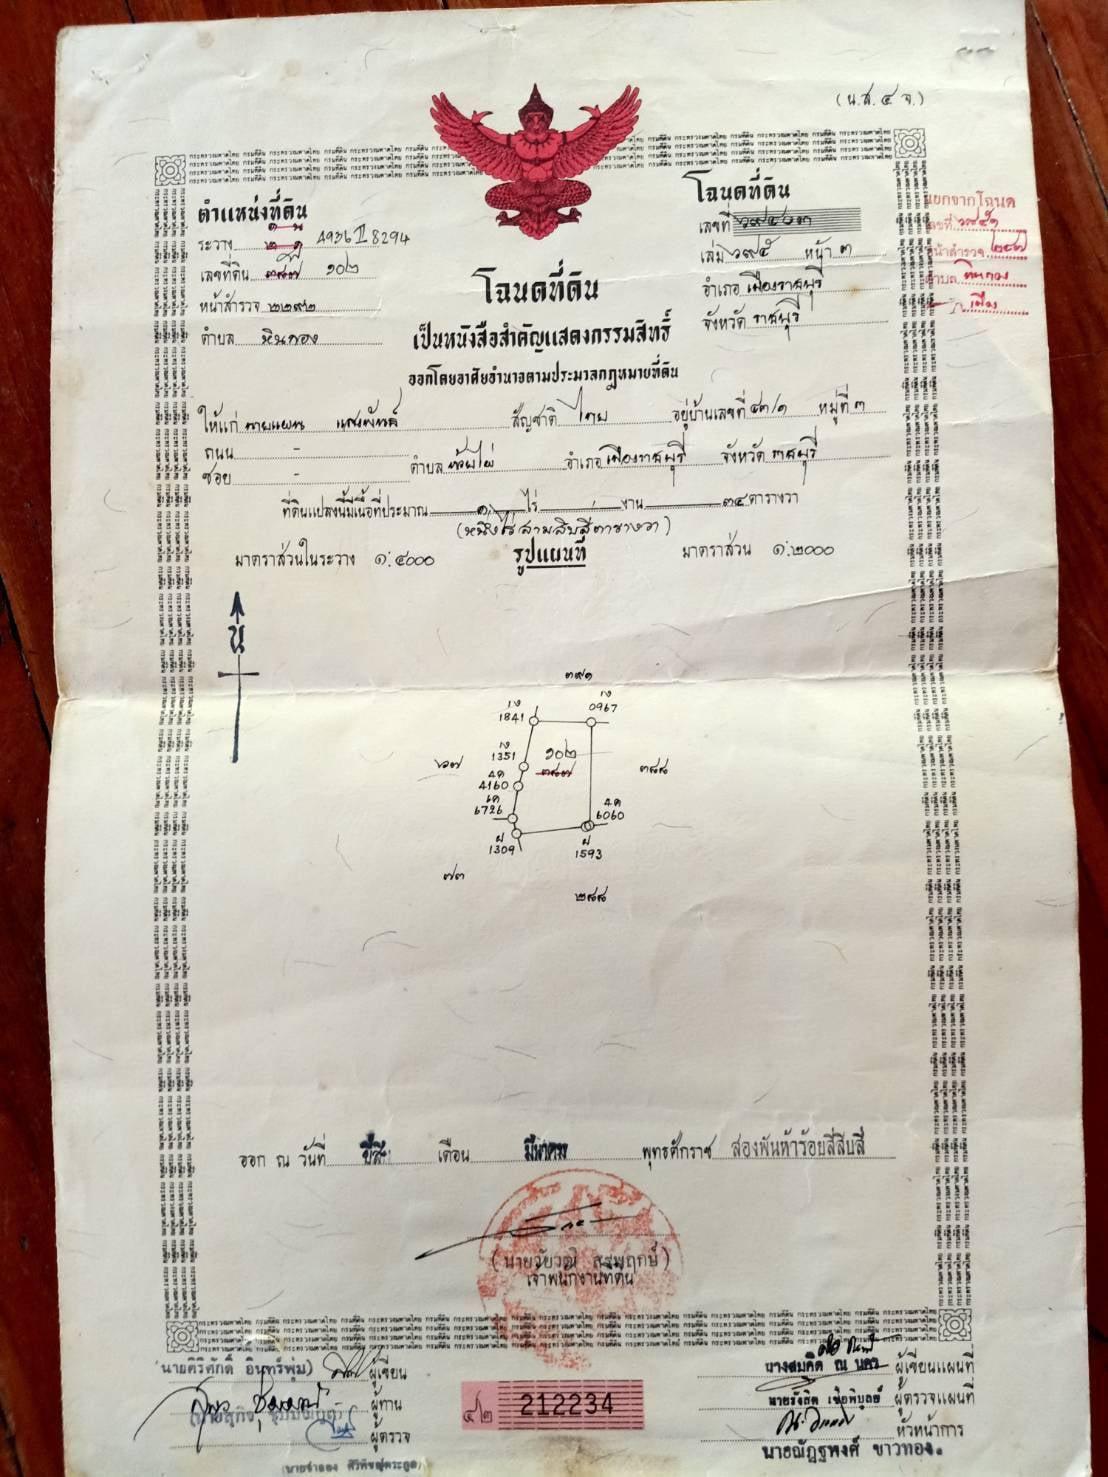 (น.ส. ๔ จ.)
ตำแหน่งที่ดิน
ระวาง 4936 II 8294
เลขที่ดิน ๓๘๗ ๑๐๒
หน้าสำรวจ ๒๒๙๒
ตำบล หินกอง
โฉนดที่ดิน
เลขที่
เล่ม ๖๙๕ หน้า ๓
อำเภอ เมืองราชบุรี
จังหวัด ราชบุรี
แยกจากโฉนด
เลขที่
หน้าสำรวจ
ตำบล หินกอง
เมือง
โฉนดที่ดิน
เป็นหนังสือสำคัญแสดงกรรมสิทธิ์
ออกโดยอาศัยอำนาจตามประมวลกฎหมายที่ดิน
ให้แก่ สัญชาติ ไทย อยู่บ้านเลขที่ ๔๓/๑ หมู่ที่ ๓
ถนน -
ซอย - ตำบล ห้วยไผ่ อำเภอ เมืองราชบุรี จังหวัด ราชบุรี
ที่ดินแปลงนี้มีเนื้อที่ประมาณ ๑ ไร่ - งาน ๓๔ ตารางวา
(หนึ่งไร่สามสิบสี่ตารางวา)
มาตราส่วนในระวาง ๑:๔๐๐๐ รูปแผนที่ มาตราส่วน ๑:๒๐๐๐
น
๓๙๑
1841
0967
1351
๑๐๒
๓๘๗
๖๗
๓๘๘
4160
6726
6060
1309
1593
๗๓
๒๘๘
ออก ณ วันที่ ยี่สิบ เดือน มีนาคม พุทธศักราช สองพันห้าร้อยสี่สิบสี่
เจ้าพนักงานที่ดิน
(นายศิริศักดิ์ อินทร์พุ่ม) ผู้เขียน
ผู้ทาน
ผู้ตรวจ
๔๒ 212234
นางสมคิด ณ นคร ผู้เขียนแผนที่
นายรังสิต เชื้อพิบูลย์ ผู้ตรวจแผนที่
หัวหน้าการ
นายณัฏฐพงศ์ ขาวทอง